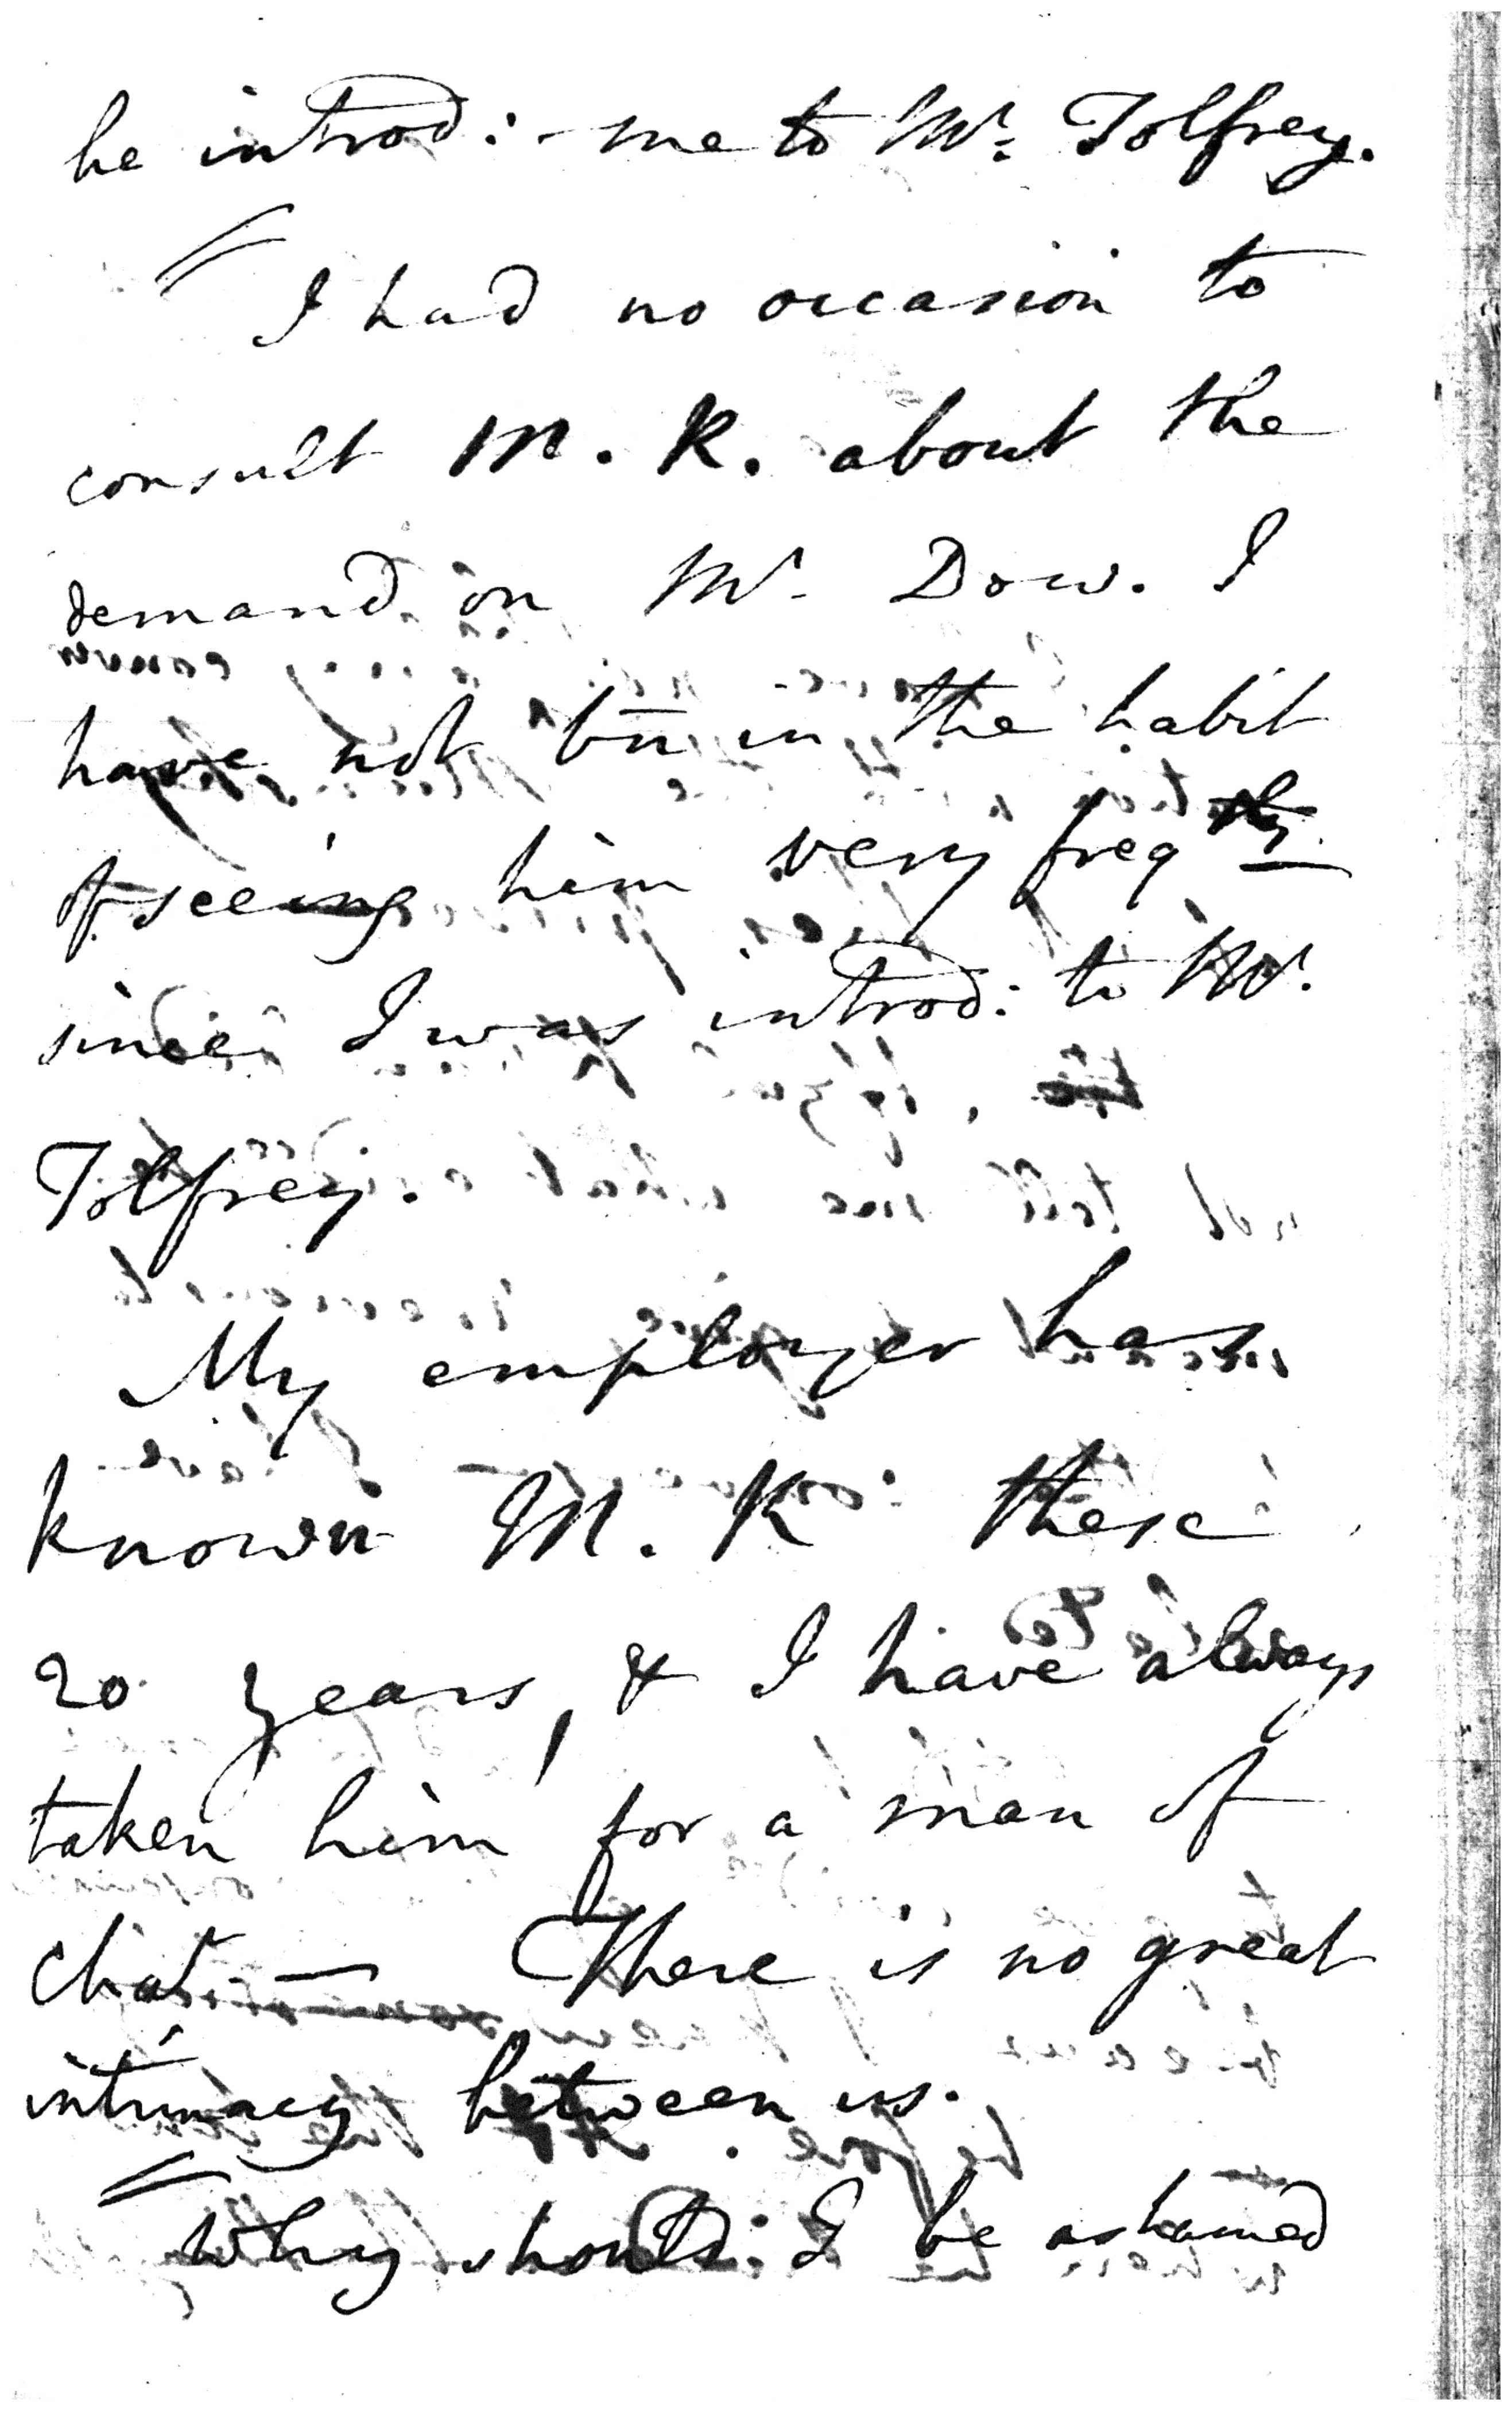 he introd: me to Mr. Tolfrey.
I had no occasion to
consult M. K. about the
demand on Mr. Dow. I
have not bn in the habit
of seeing him very freqtly
since I was introd: to Mr.
Tolfrey.
My employer has
known M. K these
20 years, & I have always
taken him for a man of
chat. — There is no great
intimacy between us.
Why should I be ashamed